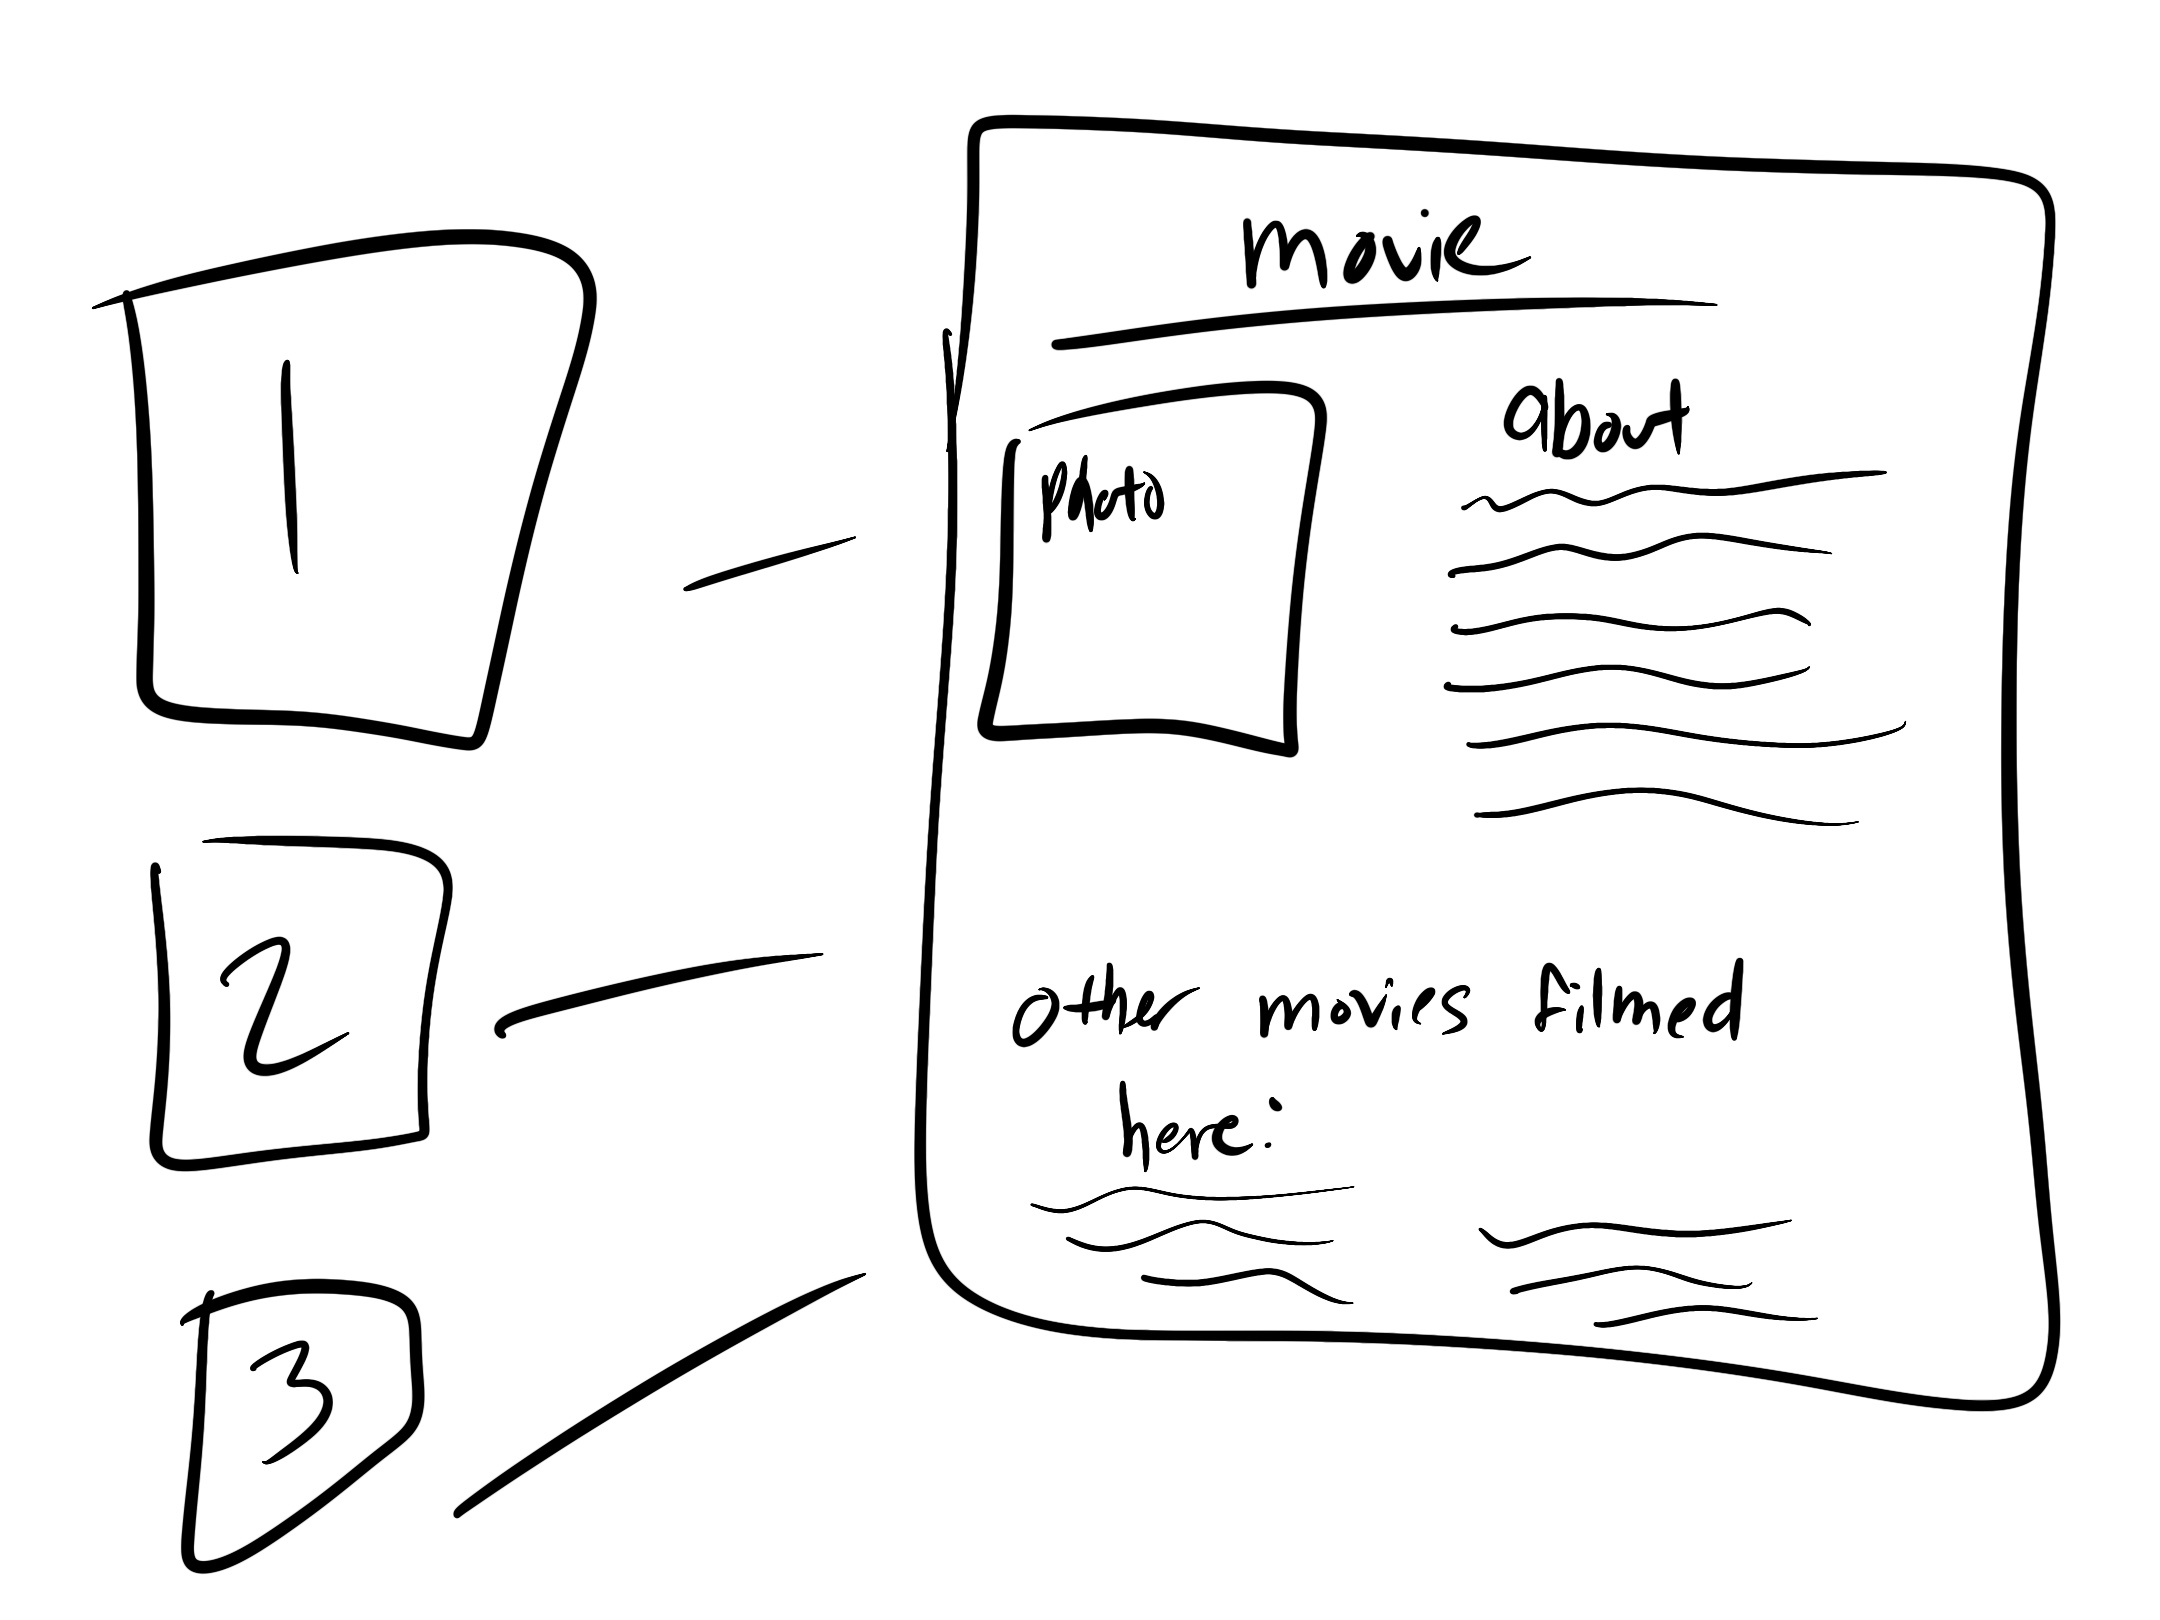 1
movie
photo
about
2
other movies filmed
here:
3